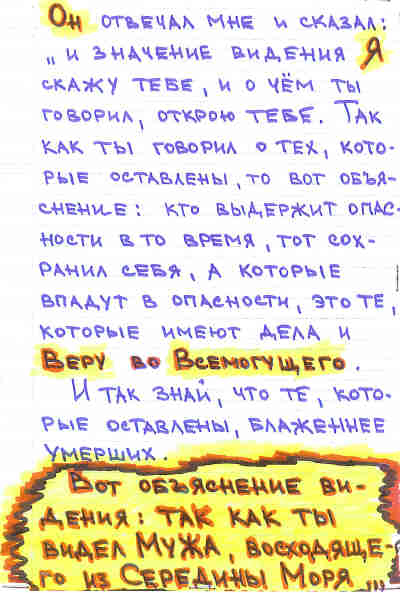 Он отвечал мне и сказал:
„и значение видения Я
скажу тебе, и о чём ты
говорил, открою тебе. Так
как ты говорил о тех, кото-
рые оставлены, то вот объя-
снение: кто выдержит опас-
ности в то время, тот сох-
ранил себя, а которые
впадут в опасности, это те,
которые имеют дела и
Веру во Всемогущего.
Итак знай, что те, кото-
рые оставлены, блаженнее
умерших.
Вот объяснение ви-
дения: так как ты
видел Мужа, восходяще-
го из Середины Моря,,,